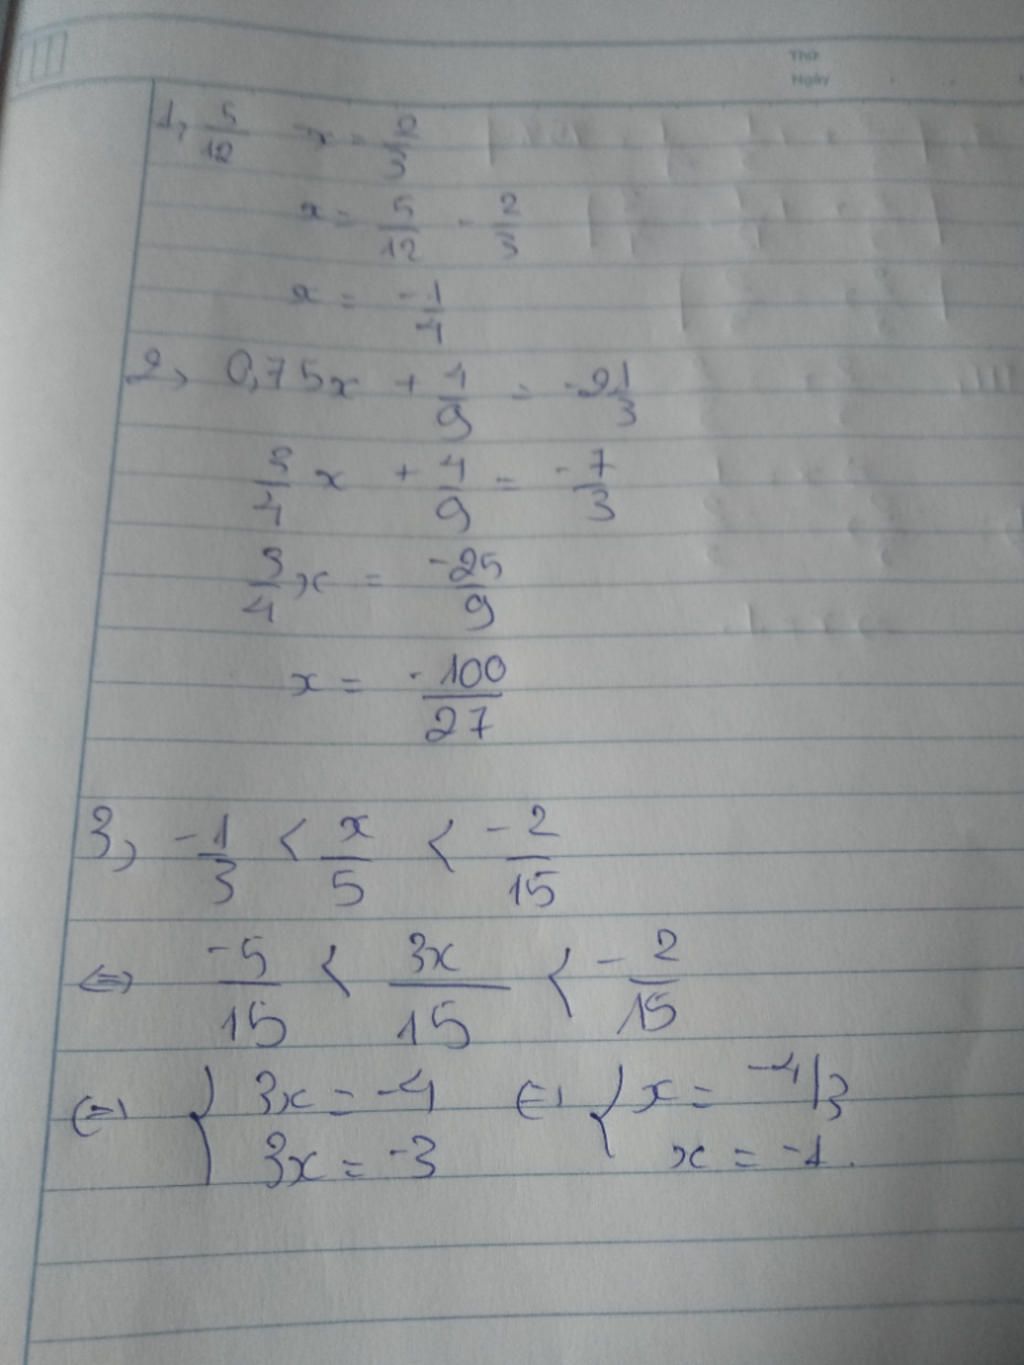 Thứ
Ngày
1, 5/12 - x = 2/3
x = 5/12 - 2/3
x = -1/4
2, 0,75x + 4/9 = -2 1/3
3/4 x + 4/9 = -7/3
3/4 x = -25/9
x = -100/27
3, -1/3 < x/5 < -2/15
⇔ -5/15 < 3x/15 < -2/15
⇔ { 3x = -4 ⇔ { x = -4/3
3x = -3 x = -1.